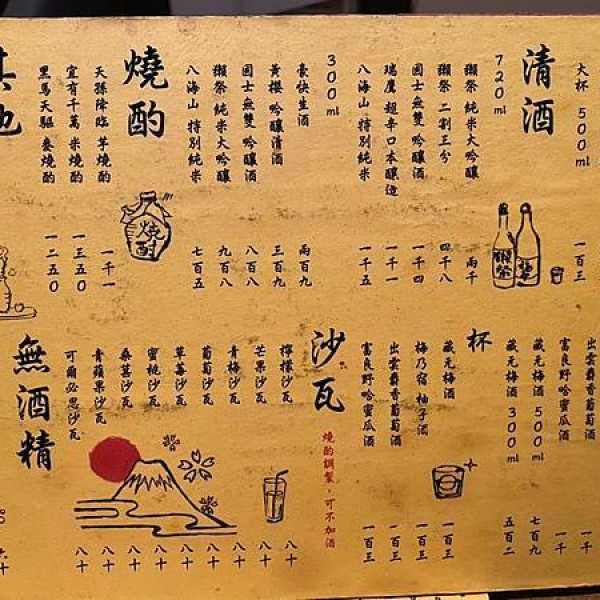 大杯 500ml 一百三
清酒
720ml
獺祭 純米大吟釀 兩千
獺祭 二割三分 四千八
國士無雙 吟釀酒 一千四
瑞鷹 超辛口本釀造 一千一
八海山 特別純米 一千五
300ml
豪快生酒 兩百九
黃櫻 吟釀清酒 三百九
國士無雙 吟釀酒 八百八
獺祭 純米大吟釀 九百八
八海山 特別純米 七百五
燒酌
燒酌
天孫降臨 芋燒酌 一千一
宜有千萬 米燒酌 一三五0
黑馬天驅 麥燒酌 一二五0
其他
出雲麝香葡萄酒 一千
富良野哈蜜瓜酒 一千
藏元梅酒 500ml 七百九
藏元梅酒 300ml 五百二
杯
藏元梅酒 一百三
梅乃宿 柚子酒 一百三
出雲麝香葡萄酒 一百三
富良野哈蜜瓜酒 一百三
沙瓦
燒酌調製，可不加酒
檸檬沙瓦 八十
芒果沙瓦 八十
青梅沙瓦 八十
葡萄沙瓦 八十
草莓沙瓦 八十
蜜桃沙瓦 八十
桑葚沙瓦 八十
青蘋果沙瓦 八十
可爾必思沙瓦 八十
無酒精